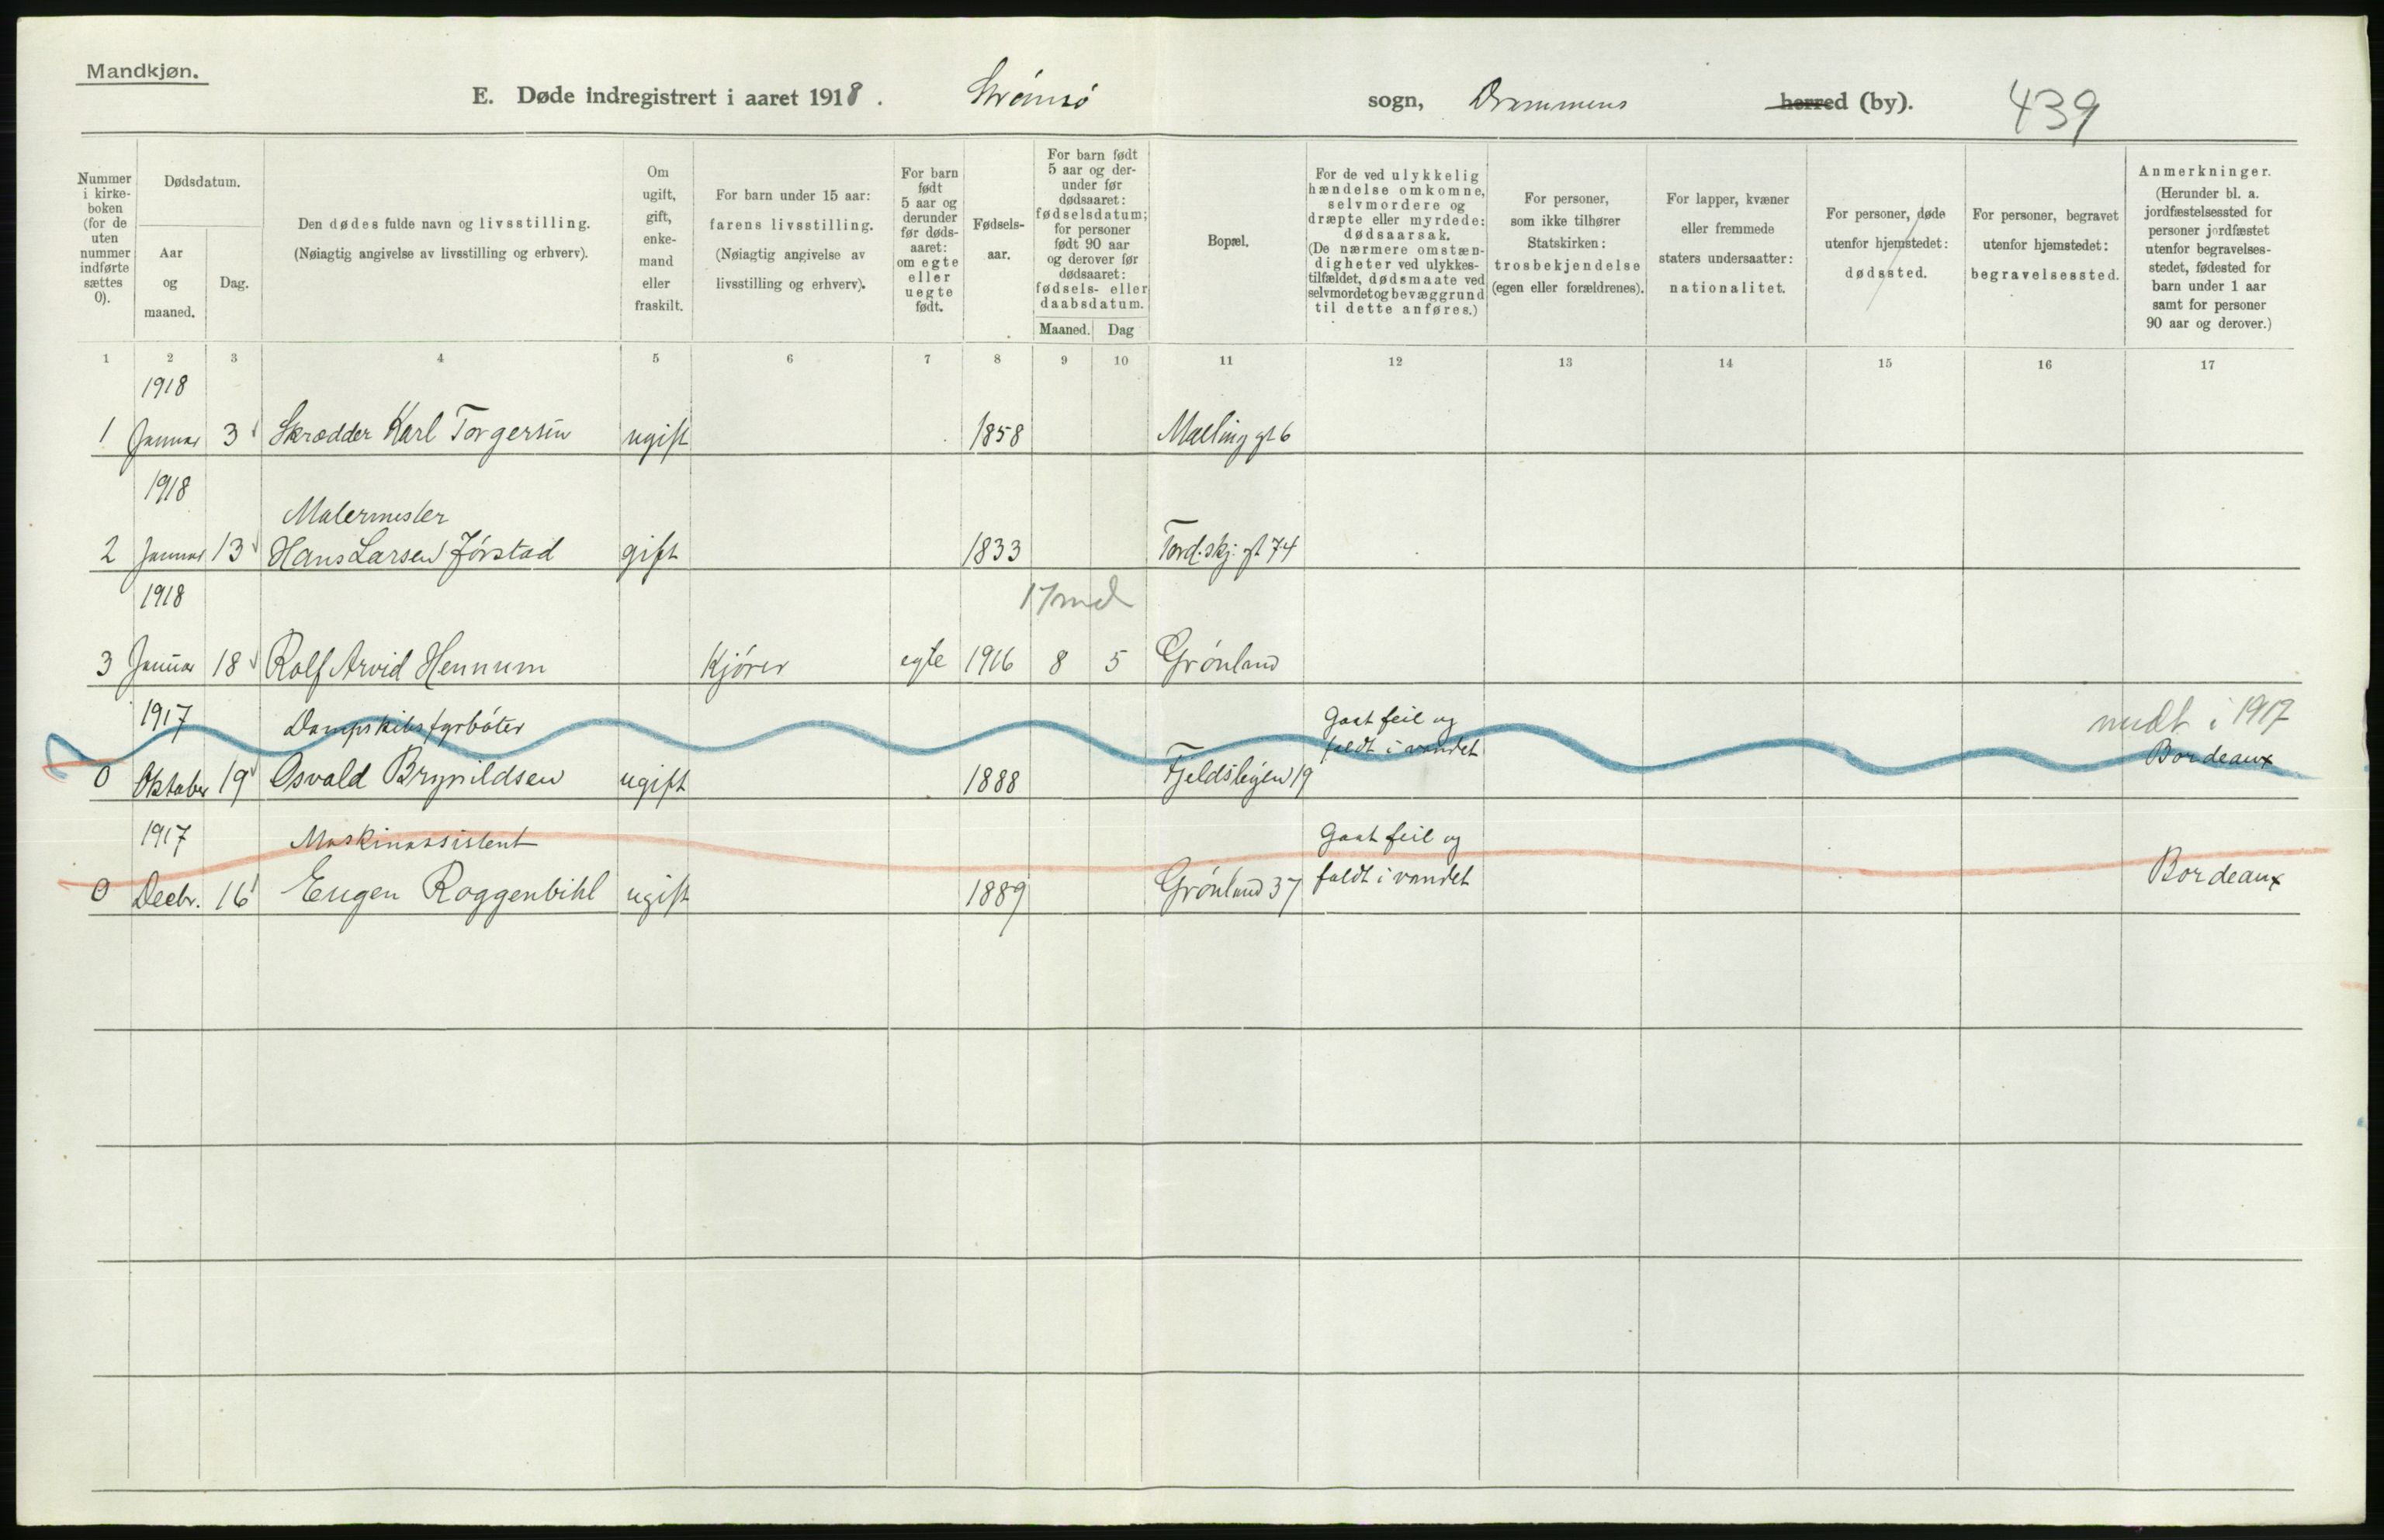 Mandkjøn.
E. Døde indregistrert i aaret 1918. Strømsø sogn, Drammens herred (by). 439
Nummer i kirkeboken (for de uten nummer indførte sættes 0).
Dødsdatum.
Aar og maaned.
Dag.
Den dødes fulde navn og livsstilling.
(Nøiagtig angivelse av livsstilling og erhverv).
Om ugift, gift, enkemand eller fraskilt.
For barn under 15 aar:
farens livsstilling.
(Nøiagtig angivelse av livsstilling og erhverv).
For barn født 5 aar og derunder før dødsaaret: om egte eller uegte født.
Fødselsaar.
For barn født 5 aar og derunder før dødsaaret: fødselsdatum; for personer født 90 aar og derover før dødsaaret: fødsels- eller daabsdatum.
Maaned. Dag
Bopæl.
For de ved ulykkelig hændelse omkomne, selvmordere og dræpte eller myrdede: dødsaarsak. (De nærmere omstændigheter ved ulykkestilfældet, dødsmaate ved selvmordet og bevæggrund til dette anføres.)
For personer, som ikke tilhører Statskirken: trosbekjendelse (egen eller forældrenes).
For lapper, kvæner eller fremmede staters undersaatter: nationalitet.
For personer, døde utenfor hjemstedet: dødssted.
For personer, begravet utenfor hjemstedet: begravelsessted.
Anmerkninger. (Herunder bl. a. jordfæstelsessted for personer jordfæstet utenfor begravelsesstedet, fødested for barn under 1 aar samt for personer 90 aar og derover.)
1 2 3 4 5 6 7 8 9 10 11 12 13 14 15 16 17
1918
1 Januar 3 Skrædder Karl Torgersen ugift 1858 Mælling gt 6
1918
Malermester
2 Januar 13 Hans Larsen Jørstad gift 1833 Tord.skj. gt 74
1918 17 md
3 Januar 18 Rolf Arvid Hennum Kjører egte 1916 8 5 Grønland
1917 Dampskibsfyrbøter Gaat feil og medt i 1917
faldt i vandet Bordeaux
0 Oktober 19 Osvald Brynildsen ugift 1888 Fjeldsbyen 19
1917 Maskinassistent Gaat feil og
0 Decbr. 16 Eugen Roggenbihl ugift 1889 Grønland 37 faldt i vandet Bordeaux